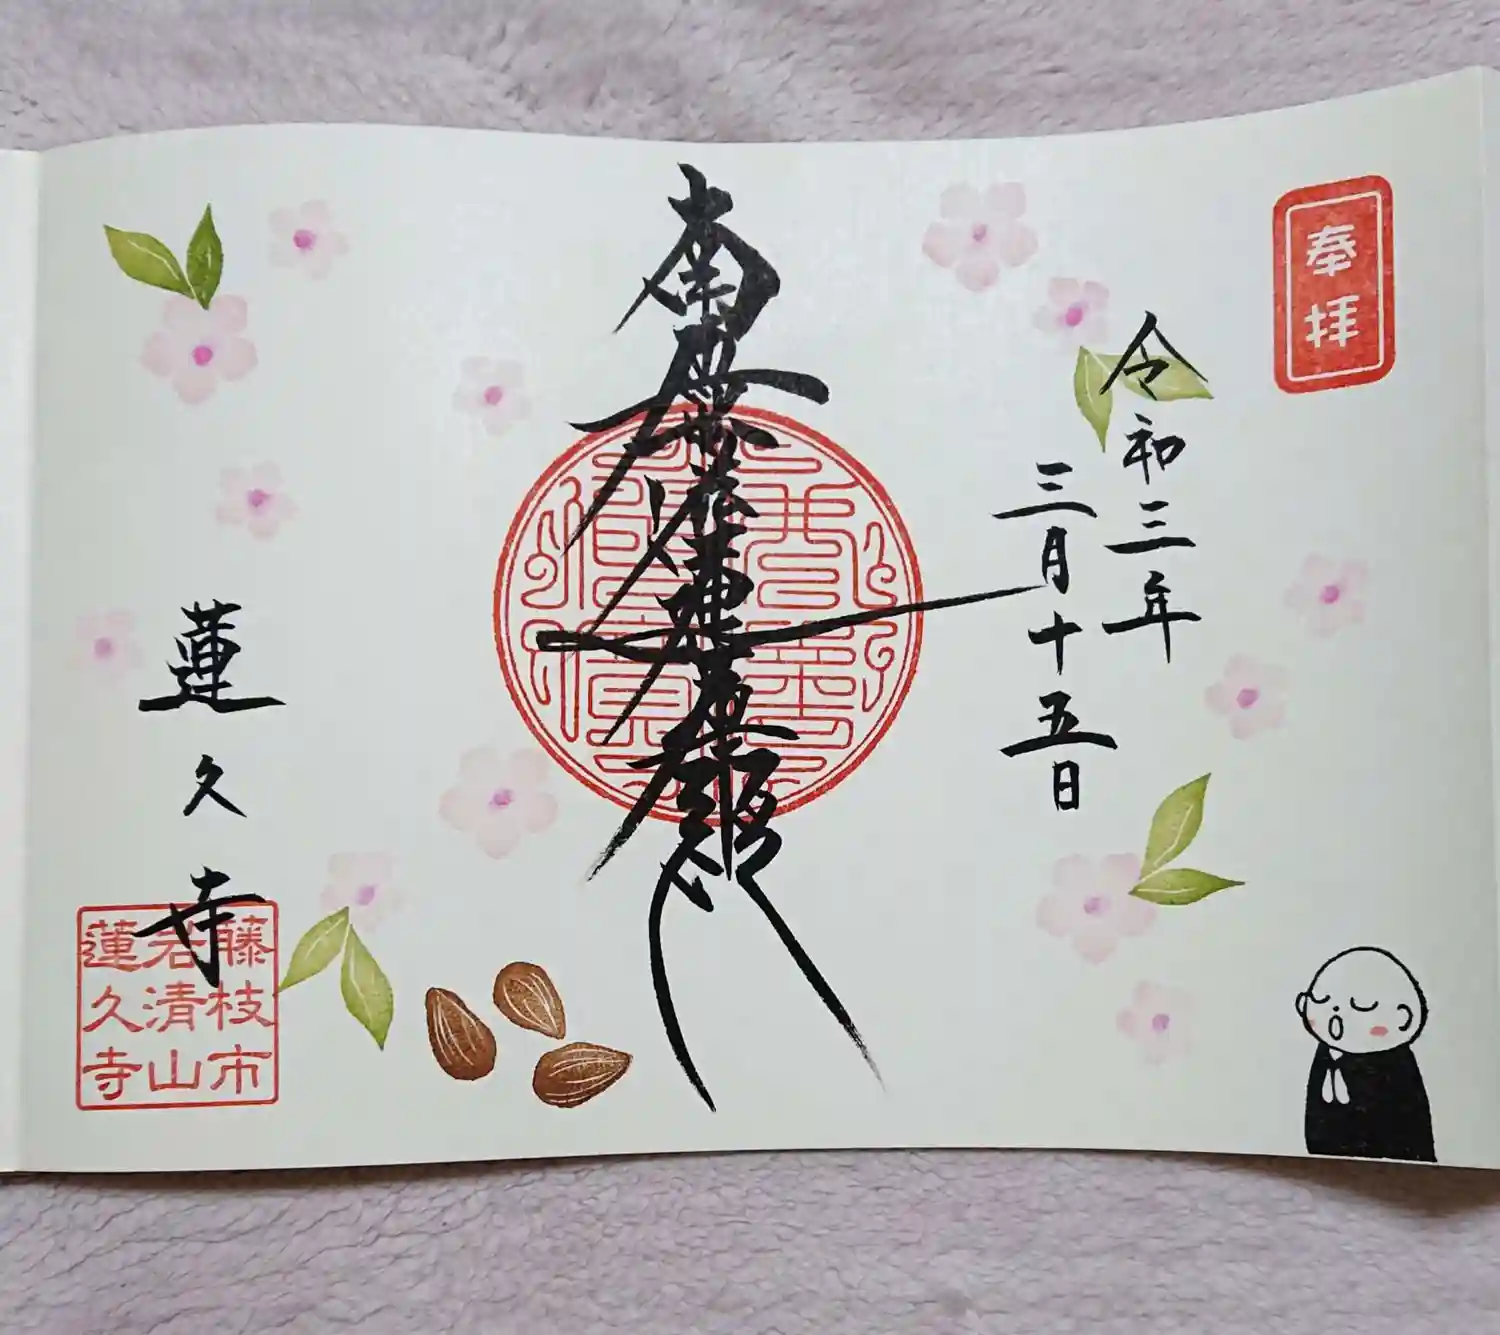 奉拝
令和三年
三月十五日
南無妙法蓮華経
蓮久寺
藤枝市
若清山
蓮久寺